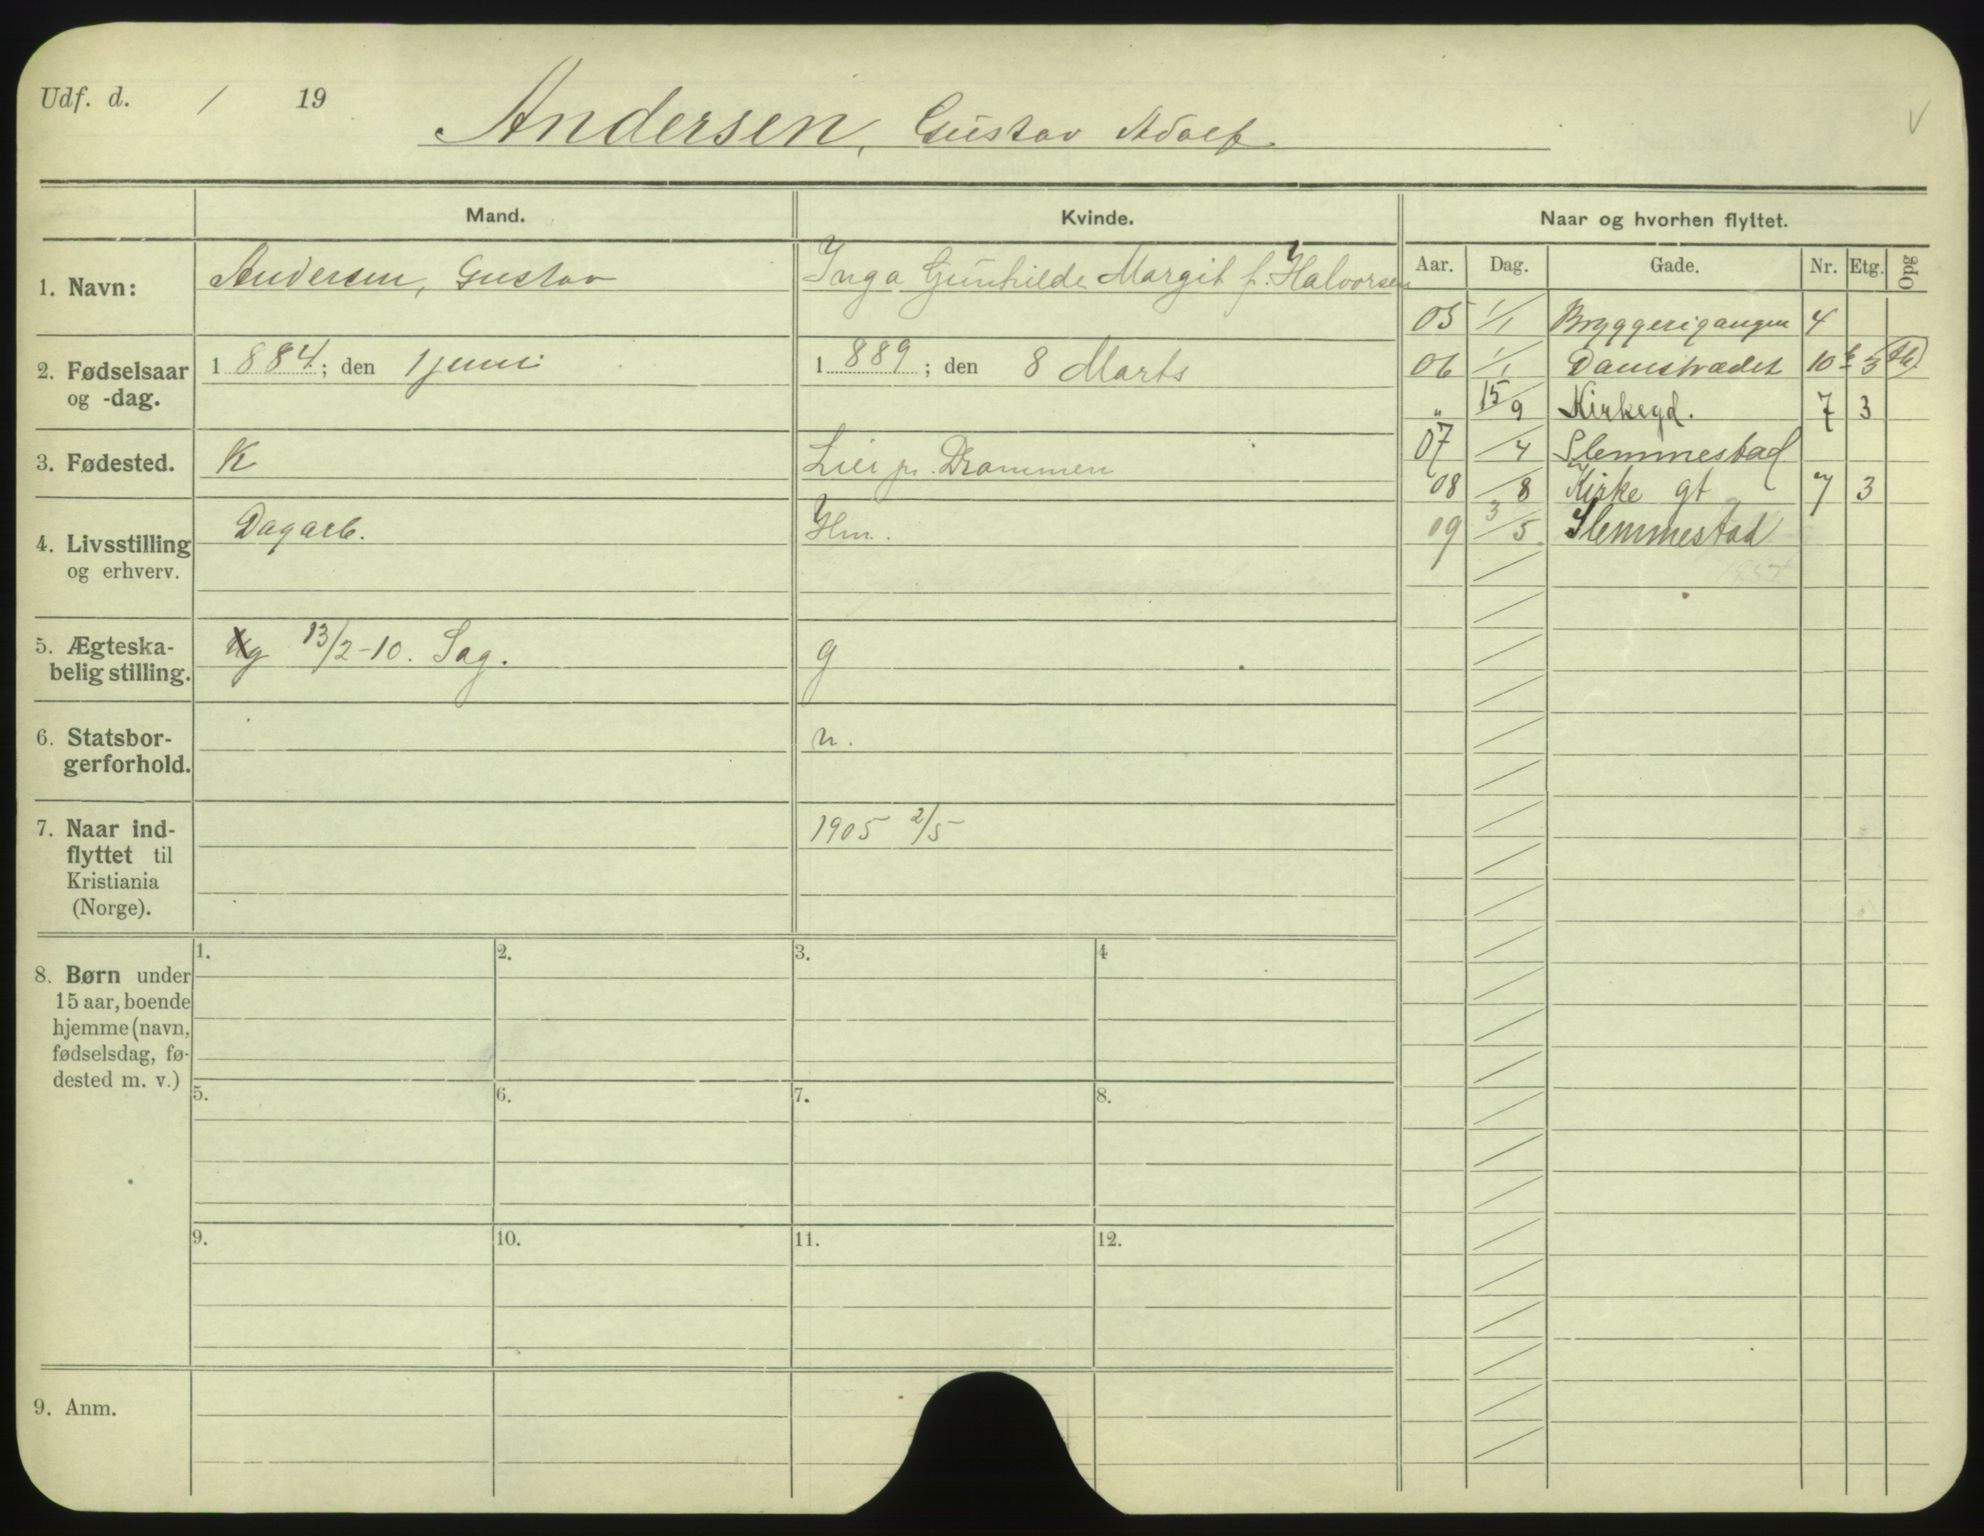 Udf. d. / 19
Andersen, Gustav Adolf
Mand. Kvinde. Naar og hvorhen flyttet.
Aar. Dag. Gade. Nr. Etg. Opg
1. Navn: Andersen, Gustav Inga Gunhilde Margit f. Halvorsen
05 1/1 Bryggerigangen 4
2. Fødselsaar og -dag. 1 884 ; den 1 juni 1 889 ; den 8 Marts
06 1/1 Damstrædet 10 b 3
" 15/9 Kirkegd. 7 3
3. Fødested. K Lier pr. Drammen
07 /4 Slemmestad
08 /8 Kirke gt 7 3
4. Livsstilling og erhverv. Dagarb. Hm.
09 3/5. Slemmestad
5. Ægteska-
belig stilling. g 13/2-10. Sag. g
6. Statsbor-
gerforhold. n.
7. Naar ind-
flyttet til
Kristiania
(Norge). 1905 2/5
8. Børn under
15 aar, boende
hjemme (navn,
fødselsdag, fø-
dested m. v.)
1. 2. 3. 4
5. 6. 7. 8.
9. 10. 11. 12.
9. Anm.